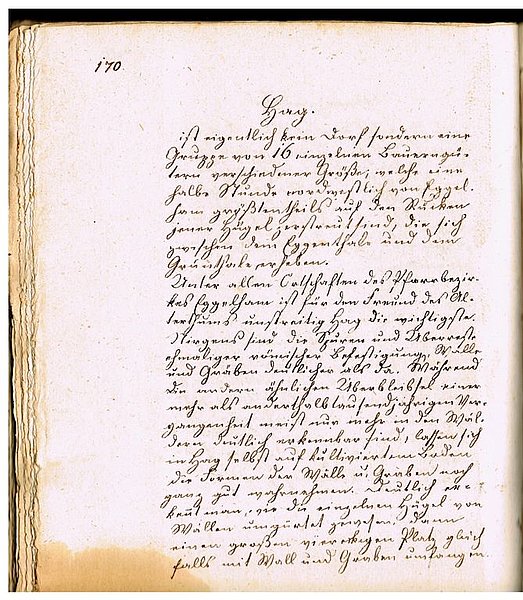 170
Hag.
ist eigentlich kein Dorf sondern eine
Gruppe von 16 einzelnen Bauerngü-
tern verschiedner Größe, welche eine
halbe Stunde nordwestlich von Eggel-
ham größtentheils auf den Rücken
jener Hügel zerstreut sind, die sich
zwischen dem Eggenthale und dem
Grunthale erheben.
Unter allen Ortschaften des Pfarrbezir-
kes Eggelham ist für den Freund des Al-
terthums unstreitig Hag die wichtigste.
Nirgends sind die Spuren und Überreste
ehmaliger römischer Befestigung, Wälle
und Gräben deutlicher als da. Während
die andern ähnlichen Überbleibsel einer
mehr als anderthalbtausendjährigen Ver-
gangenheit meist nur mehr in den Wäl-
dern deutlich erkennbar sind, lassen sich
in Hag selbst auf kultiviertem Boden
die Formen der Wälle u. Gräben noch
ganz gut wahrnehmen. Deutlich er-
kennt man, wie die einzelnen Hügel von
Wällen umgürtet gewesen, dann
einen großen viereckigen Platz gleich
falls mit Wall und Graben umfangen.